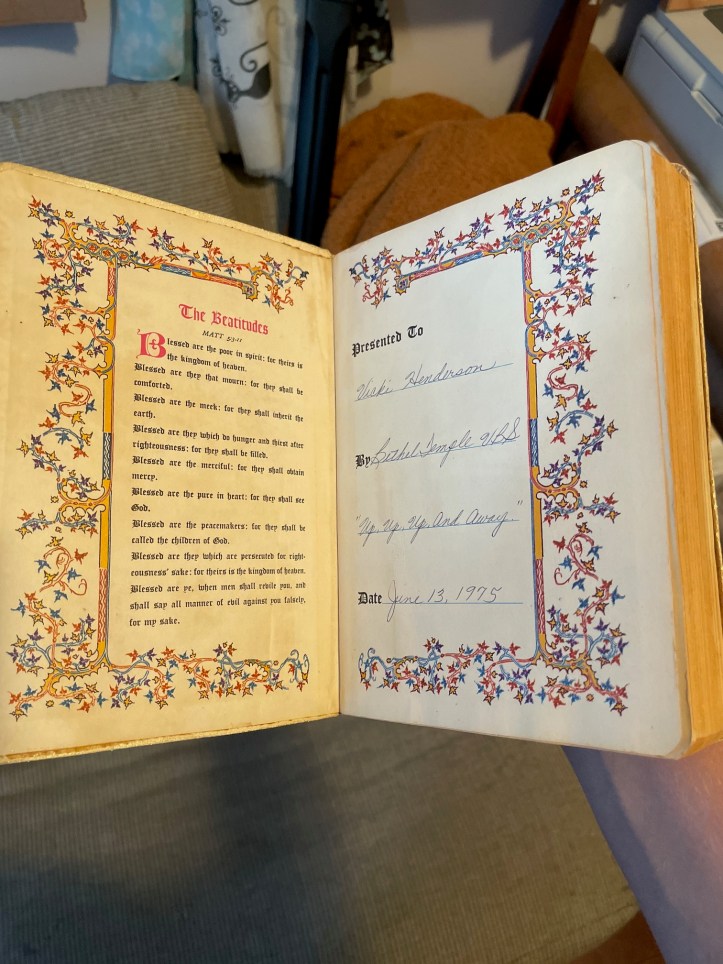 The Beatitudes
MATT 5:3-11
Blessed are the poor in spirit: for theirs is
the kingdom of heaven.
Blessed are they that mourn: for they shall be
comforted.
Blessed are the meek: for they shall inherit the
earth.
Blessed are they which do hunger and thirst after
righteousness: for they shall be filled.
Blessed are the merciful: for they shall obtain
mercy.
Blessed are the pure in heart: for they shall see
God.
Blessed are the peacemakers: for they shall be
called the children of God.
Blessed are they which are persecuted for right-
eousness' sake: for theirs is the kingdom of heaven.
Blessed are ye, when men shall revile you, and
shall say all manner of evil against you falsely,
for my sake.
Presented To
Vicki Henderson
By Bethel Temple VBS
"Up, Up, Up And Away."
Date June 13, 1975